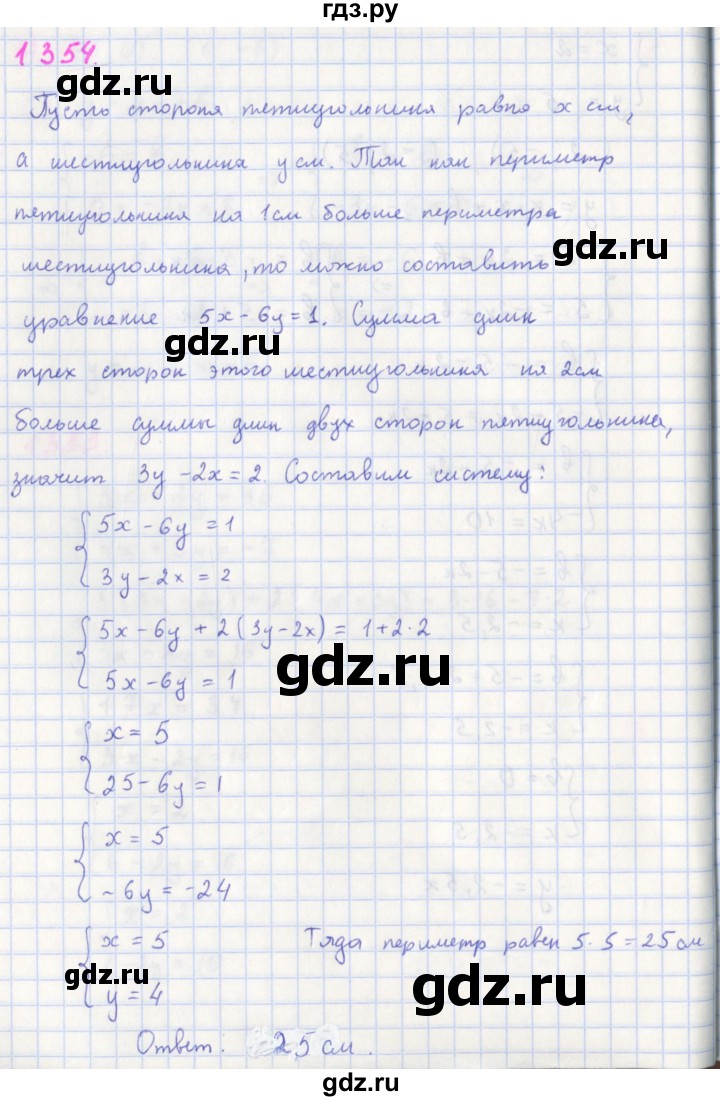 гдз.ру
1354.
gdz.ru
Пусть сторона пятиугольника равна x см,
а шестиугольника y см. Так как периметр
пятиугольника на 1 см больше периметра
gdz.ru
шестиугольника, то можно составить
уравнение 5x - 6y = 1. Сумма длин
gdz.ru
трех сторон этого шестиугольника на 2 см
больше суммы длин двух сторон пятиугольника,
значит 3y - 2x = 2. Составим систему:
5x - 6y = 1
3y - 2x = 2
5x - 6y + 2(3y - 2x) = 1 + 2·2
gdz.ru
5x - 6y = 1
x = 5
25 - 6y = 1
gdz.ru
x = 5
-6y = -24
x = 5 Тогда периметр равен 5·5 = 25 см
gdz.ru
y = 4
gdz.ru
Ответ: 25 см.
gdz.ru